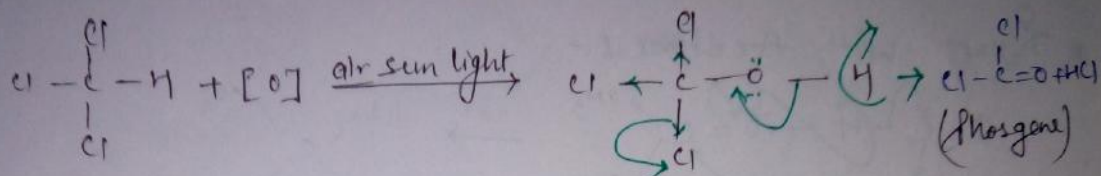 Cl Cl Cl
Cl - C - H + [O] air sun light → Cl ← C - Ö - H → Cl - C = O + HCl
Cl Cl (Phosgene)